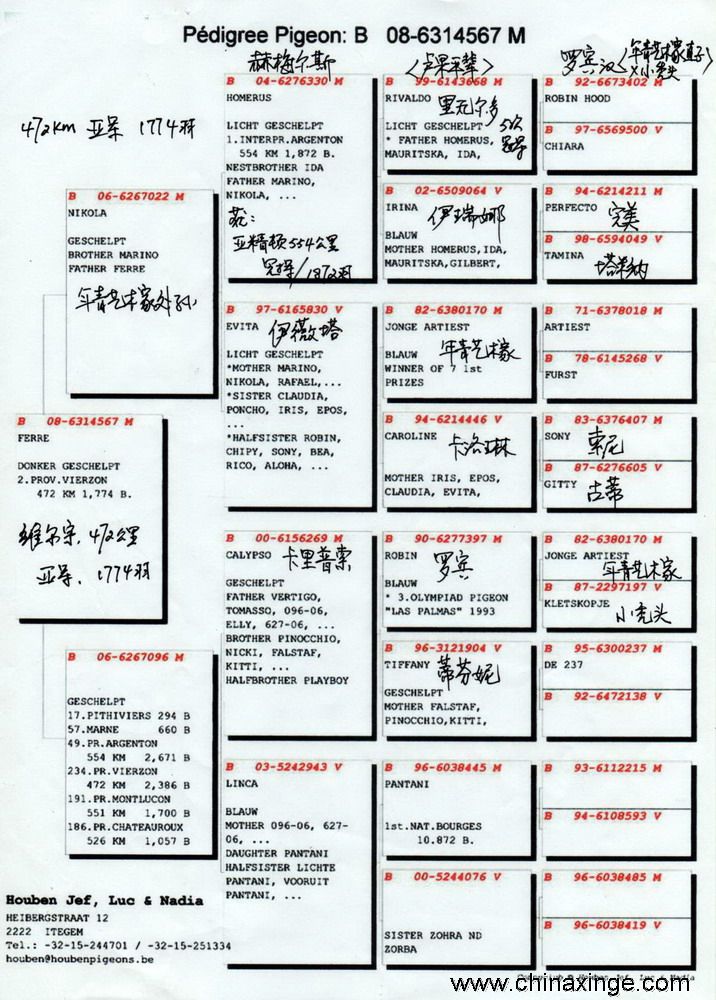 Pédigree Pigeon: B 08-6314567 M
472km 亚军 1774羽
B 08-6314567 M
FERRE
DONKER GESCHELPT
2.PROV.VIERZON
472 KM 1,774 B.
维尔宗, 472公里
亚军, 1774羽
B 06-6267022 M
NIKOLA
GESCHELPT
BROTHER MARINO
FATHER FERRE
年青艺术家外孙
B 06-6267096 M
GESCHELPT
17.PITHIVIERS 294 B
57.MARNE 660 B
49.PR.ARGENTON
554 KM 2,671 B
234.PR.VIERZON
472 KM 2,386 B
191.PR.MONTLUCON
551 KM 1,700 B
186.PR.CHATEAUROUX
526 KM 1,057 B
赫梅尔斯
B 04-6276330 M
HOMERUS
LICHT GESCHELPT
1.INTERPR.ARGENTON
554 KM 1,872 B.
NESTBROTHER IDA
FATHER MARINO,
NIKOLA, ...
亚精顿554公里
冠军/1872羽
B 97-6165830 V
EVITA 伊薇塔
LICHT GESCHELPT
*MOTHER MARINO,
NIKOLA, RAFAEL,...
*SISTER CLAUDIA,
PONCHO, IRIS, EPOS,
...
*HALFSISTER ROBIN,
CHIPY, SONY, BEA,
RICO, ALOHA, ...
B 00-6156269 M
CALYPSO 卡里普索
GESCHELPT
FATHER VERTIGO,
TOMASSO, 096-06,
ELLY, 627-06, ...
BROTHER PINOCCHIO,
NICKI, FALSTAF,
KITTI, ...
HALFBROTHER PLAYBOY
B 03-5242943 V
LINCA
BLAUW
MOTHER 096-06, 627-
06, ...
DAUGHTER PANTANI
HALFSISTER LICHTE
PANTANI, VOORUIT
PANTANI, ...
B 99-6143668 M
RIVALDO 里瓦尔多
LICHT GESCHELPT 5次
* FATHER HOMERUS, 冠军
MAURITSKA, IDA,
B 02-6509064 V
IRINA 伊瑞娜
BLAUW
MOTHER HOMERUS,IDA,
MAURITSKA,GILBERT,
B 82-6380170 M
JONGE ARTIEST
BLAUW 年青艺术家
WINNER OF 7 1st
PRIZES
B 94-6214446 V
CAROLINE 卡洛琳
MOTHER IRIS, EPOS,
CLAUDIA, EVITA,
B 90-6277397 M
ROBIN 罗宾
BLAUW
* 3.OLYMPIAD PIGEON
"LAS PALMAS" 1993
B 96-3121904 V
TIFFANY 蒂芬妮
GESCHELPT
MOTHER FALSTAF,
PINOCCHIO,KITTI,
B 96-6038445 M
PANTANI
1st.NAT.BOURGES
10.872 B.
B 00-5244076 V
SISTER ZOHRA ND
ZORBA
罗宾汉(年青艺术家直子
X小秃头
B 92-6673402 M
ROBIN HOOD
B 97-6569500 V
CHIARA
B 94-6214211 M
PERFECTO 完美
B 98-6594049 V
TAMINA 塔米纳
B 71-6378018 M
ARTIEST
B 78-6145268 V
FURST
B 83-6376407 M
SONY 索尼
B 87-6276605 V
GITTY 古蒂
B 82-6380170 M
JONGE ARTIEST
年青艺术家
B 87-2297197 V
KLETSKOPJE 小秃头
B 95-6300237 M
DE 237
B 92-6472138 V
B 93-6112215 M
B 94-6108593 V
B 96-6038485 M
B 96-6038419 V
Houben Jef, Luc & Nadia
HEIBERGSTRAAT 12
2222 ITEGEM
Tel.: -32-15-244701 / -32-15-251334
houben@houbenpigeons.be
Copyright © Houben Jef, Luc & Nadia
www.chinaxinge.com